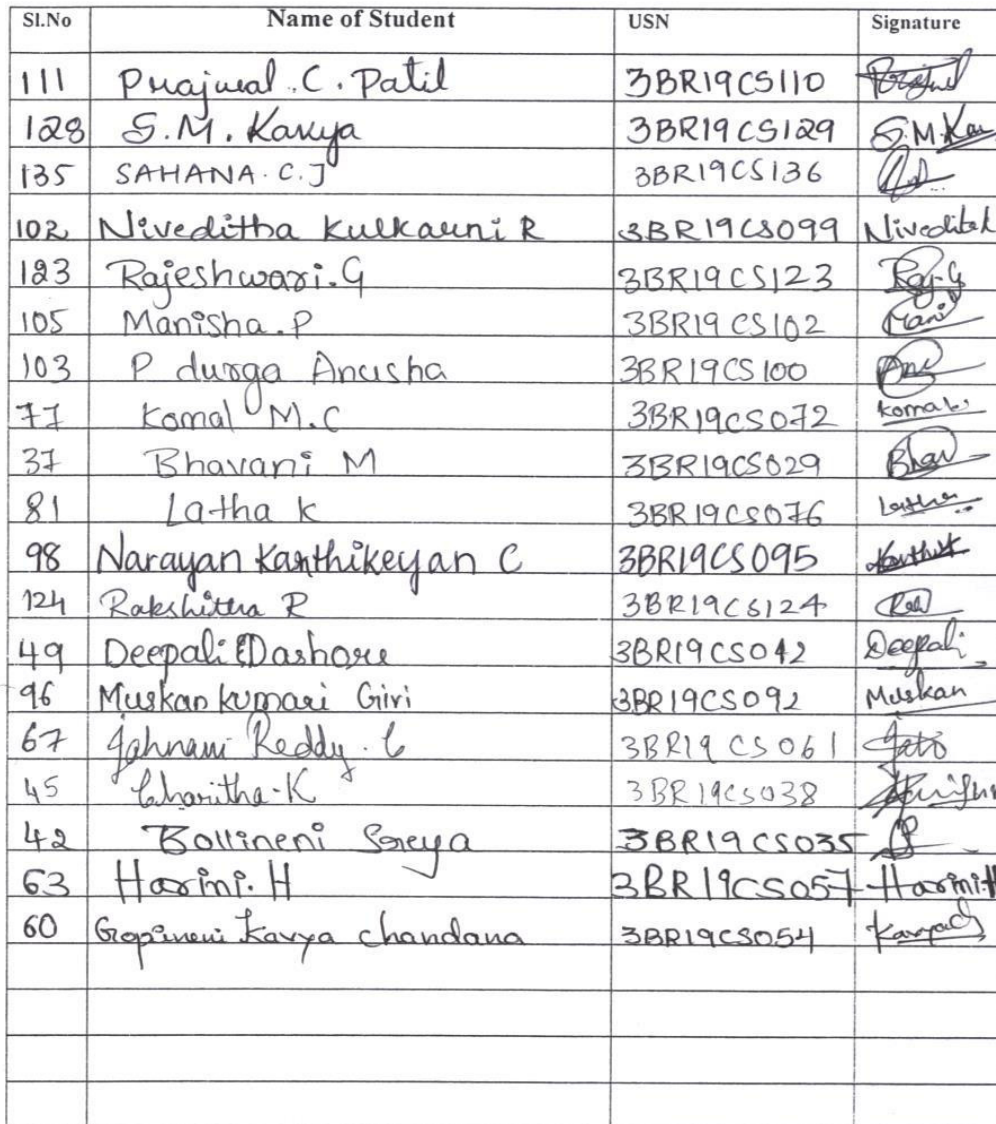 Sl.No Name of Student USN Signature
111 Prajwal.C.Patil 3BR19CS110
128 S.M.Kavya 3BR19CS129 S.M.Kav
135 SAHANA.C.J 3BR19CS136
102 Niveditha Kulkarni R 3BR19CS099
123 Rajeshwari.G 3BR19CS123 Raj.G
105 Manisha.P 3BR19CS102 Mani
103 P durga Anusha 3BR19CS100 Anu
77 Komal M.C 3BR19CS072
37 Bhavani M 3BR19CS029 Bhav
81 Latha K 3BR19CS076 Latha
98 Narayan Karthikeyan C 3BR19CS095
124 Rakshitha R 3BR19CS124
49 Deepali Dashore 3BR19CS042 Deepali
96 Muskan Kumari Giri 3BR19CS092 Muskan
67 Jahnavi Reddy.C 3BR19CS061
45 Charitha.K 3BR19CS038
42 Bollineni Sreya 3BR19CS035
63 Harini.H 3BR19CS057 Harini.H
60 Gopineni Kavya Chandana 3BR19CS054